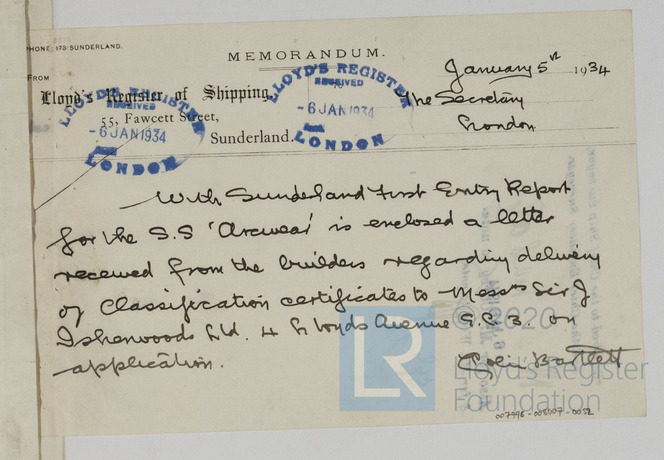 PHONE: 173 SUNDERLAND.
MEMORANDUM.
FROM
January 5th 1934
Lloyd's Register of Shipping,
55, Fawcett Street,
Sunderland.
The Secretary
London
LLOYD'S REGISTER
RECEIVED
-6 JAN 1934
LONDON
LLOYD'S REGISTER
RECEIVED
-6 JAN 1934
LONDON
With Sunderland First Entry Report
for the S.S 'Arcwear' is enclosed a letter
received from the builders regarding delivery
of Classification certificates to Messrs Sir J
Isherwoods Ltd. 4 Lloyds Avenue E.C.3. on
application.
Colin Bartlett
© 2020
LR
Lloyd's Register
Foundation
007996-008007-0052